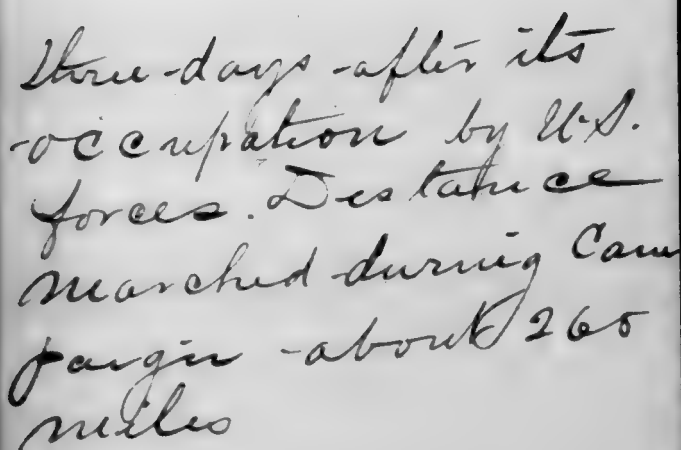 three days after its
occupation by U.S.
forces. Distance
marched during Cam
paign about 260
miles